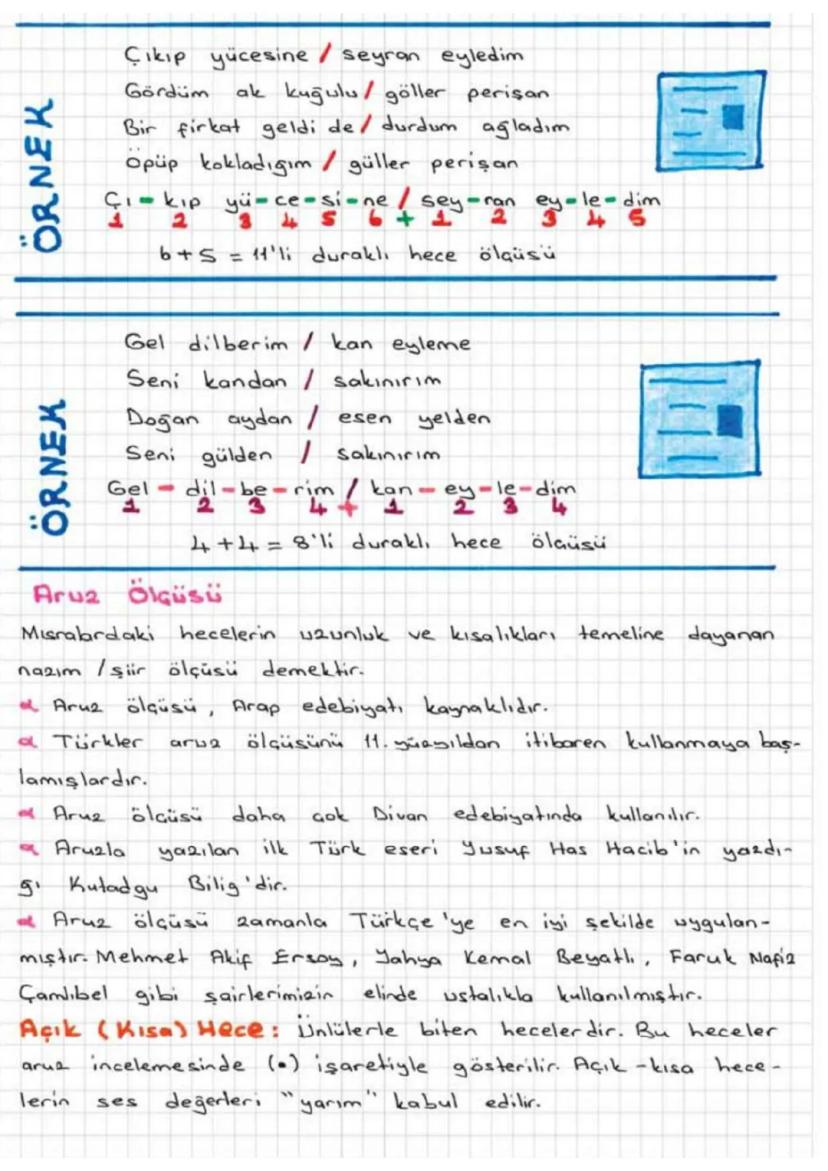 ÖRNEK
Çıkıp yücesine / seyran eyledim
Gördüm ak kuğulu / göller perişan
Bir firkat geldi de / durdum ağladım
Öpüp kokladığım / güller perişan
Çı - kıp yü - ce - si - ne / sey - ran ey - le - dim
1 2 3 4 5 6 + 1 2 3 4 5
6+5 = 11'li duraklı hece ölçüsü
ÖRNEK
Gel dilberim / kan eyleme
Seni kandan / sakınırım
Doğan aydan / esen yelden
Seni gülden / sakınırım
Gel - dil - be - rim / kan - ey - le - dim
1 2 3 4 + 1 2 3 4
4+4 = 8'li duraklı hece ölçüsü
Aruz Ölçüsü
Mısralardaki hecelerin uzunluk ve kısalıkları temeline dayanan
nazım / şiir ölçüsü demektir.
Aruz ölçüsü, Arap edebiyatı kaynaklıdır.
Türkler aruz ölçüsünü 11. yüzyıldan itibaren kullanmaya baş-
lamışlardır.
Aruz ölçüsü daha çok Divan edebiyatında kullanılır.
Aruzla yazılan ilk Türk eseri Yusuf Has Hacib'in yazdı-
ğı Kutadgu Bilig'dir.
Aruz ölçüsü zamanla Türkçe'ye en iyi şekilde uygulan-
mıştır. Mehmet Akif Ersoy, Yahya Kemal Beyatlı, Faruk Nafiz
Çamlıbel gibi şairlerimizin elinde ustalıkla kullanılmıştır.
Açık (Kısa) Hece: Ünlülerle biten hecelerdir. Bu heceler
aruz incelemesinde (•) işaretiyle gösterilir. Açık - kısa hece-
lerin ses değerleri "yarım" kabul edilir.